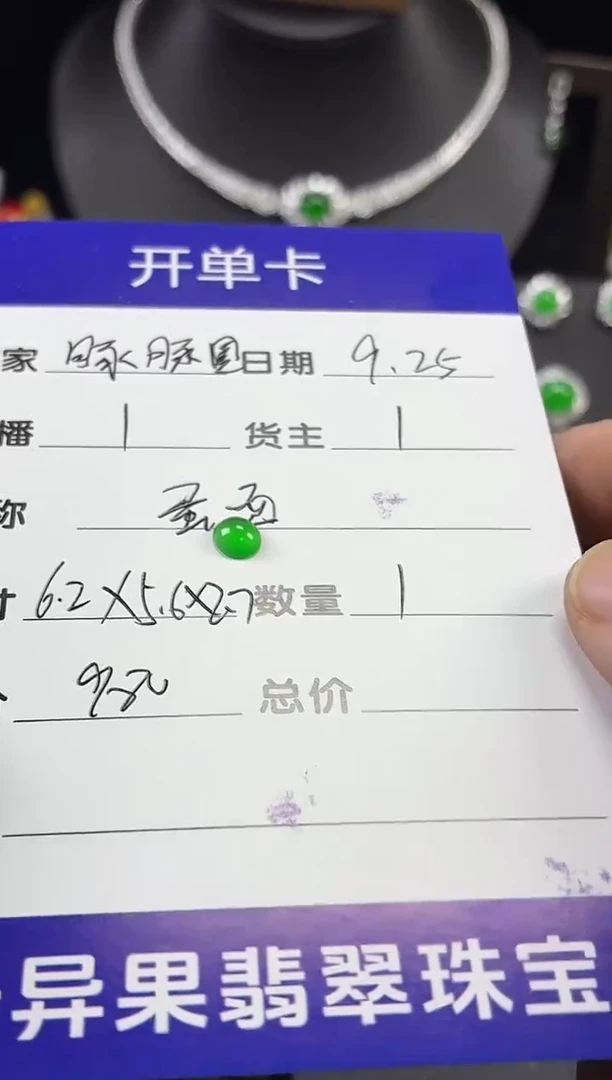 开单卡
家 日期 9.25
播 1 货主 1
称 蛋面
寸 6.2X5.6X2.7 数量 1
总价
异果翡翠珠宝